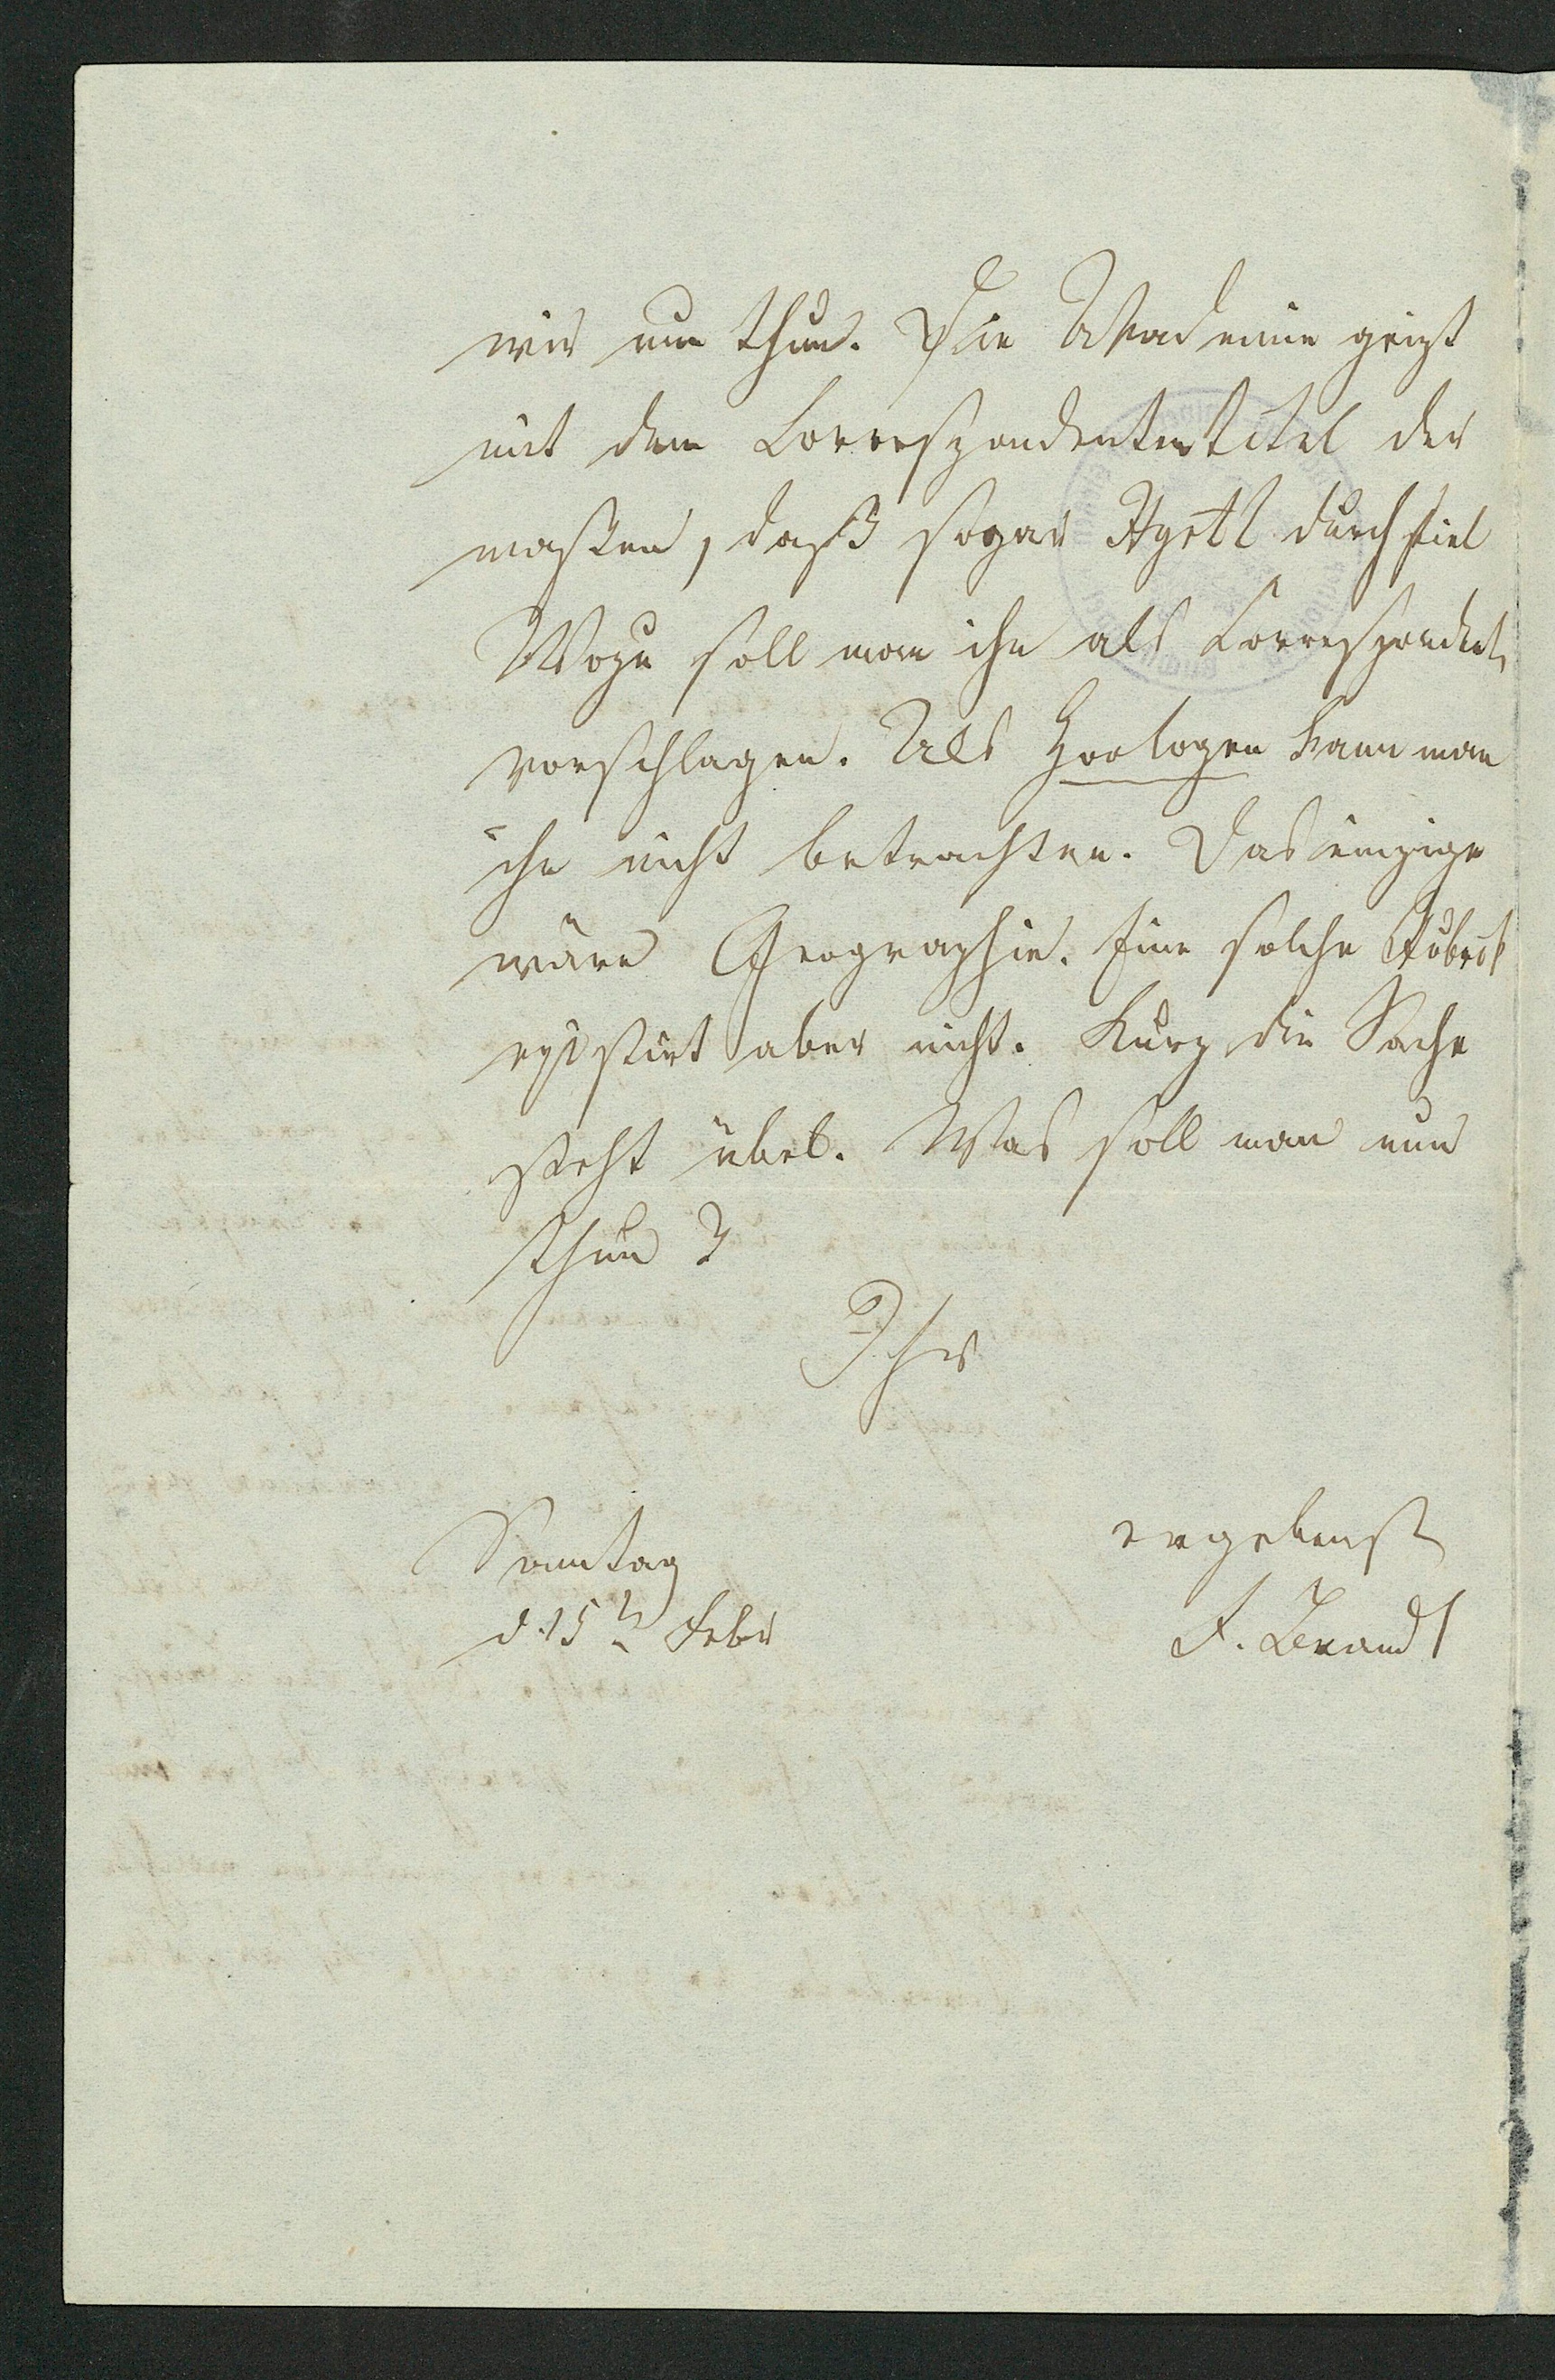 wir nun thun. Die Akademie geizt
mit dem Correspondententitel der
maßen, daß sogar Hyrtl durchfiel
Wozu soll man ihn als Correspondent
vorschlagen. Als Zoologen kann man
ihn nicht betrachten. Das einzige
wäre Geographie. Eine solche Rubrik
existirt aber nicht. Kurz die Sache
steht übel. Was soll man nun
thun?
Ihr
ergebenst
Sonntag
d. 15t Febr
F. Brandt